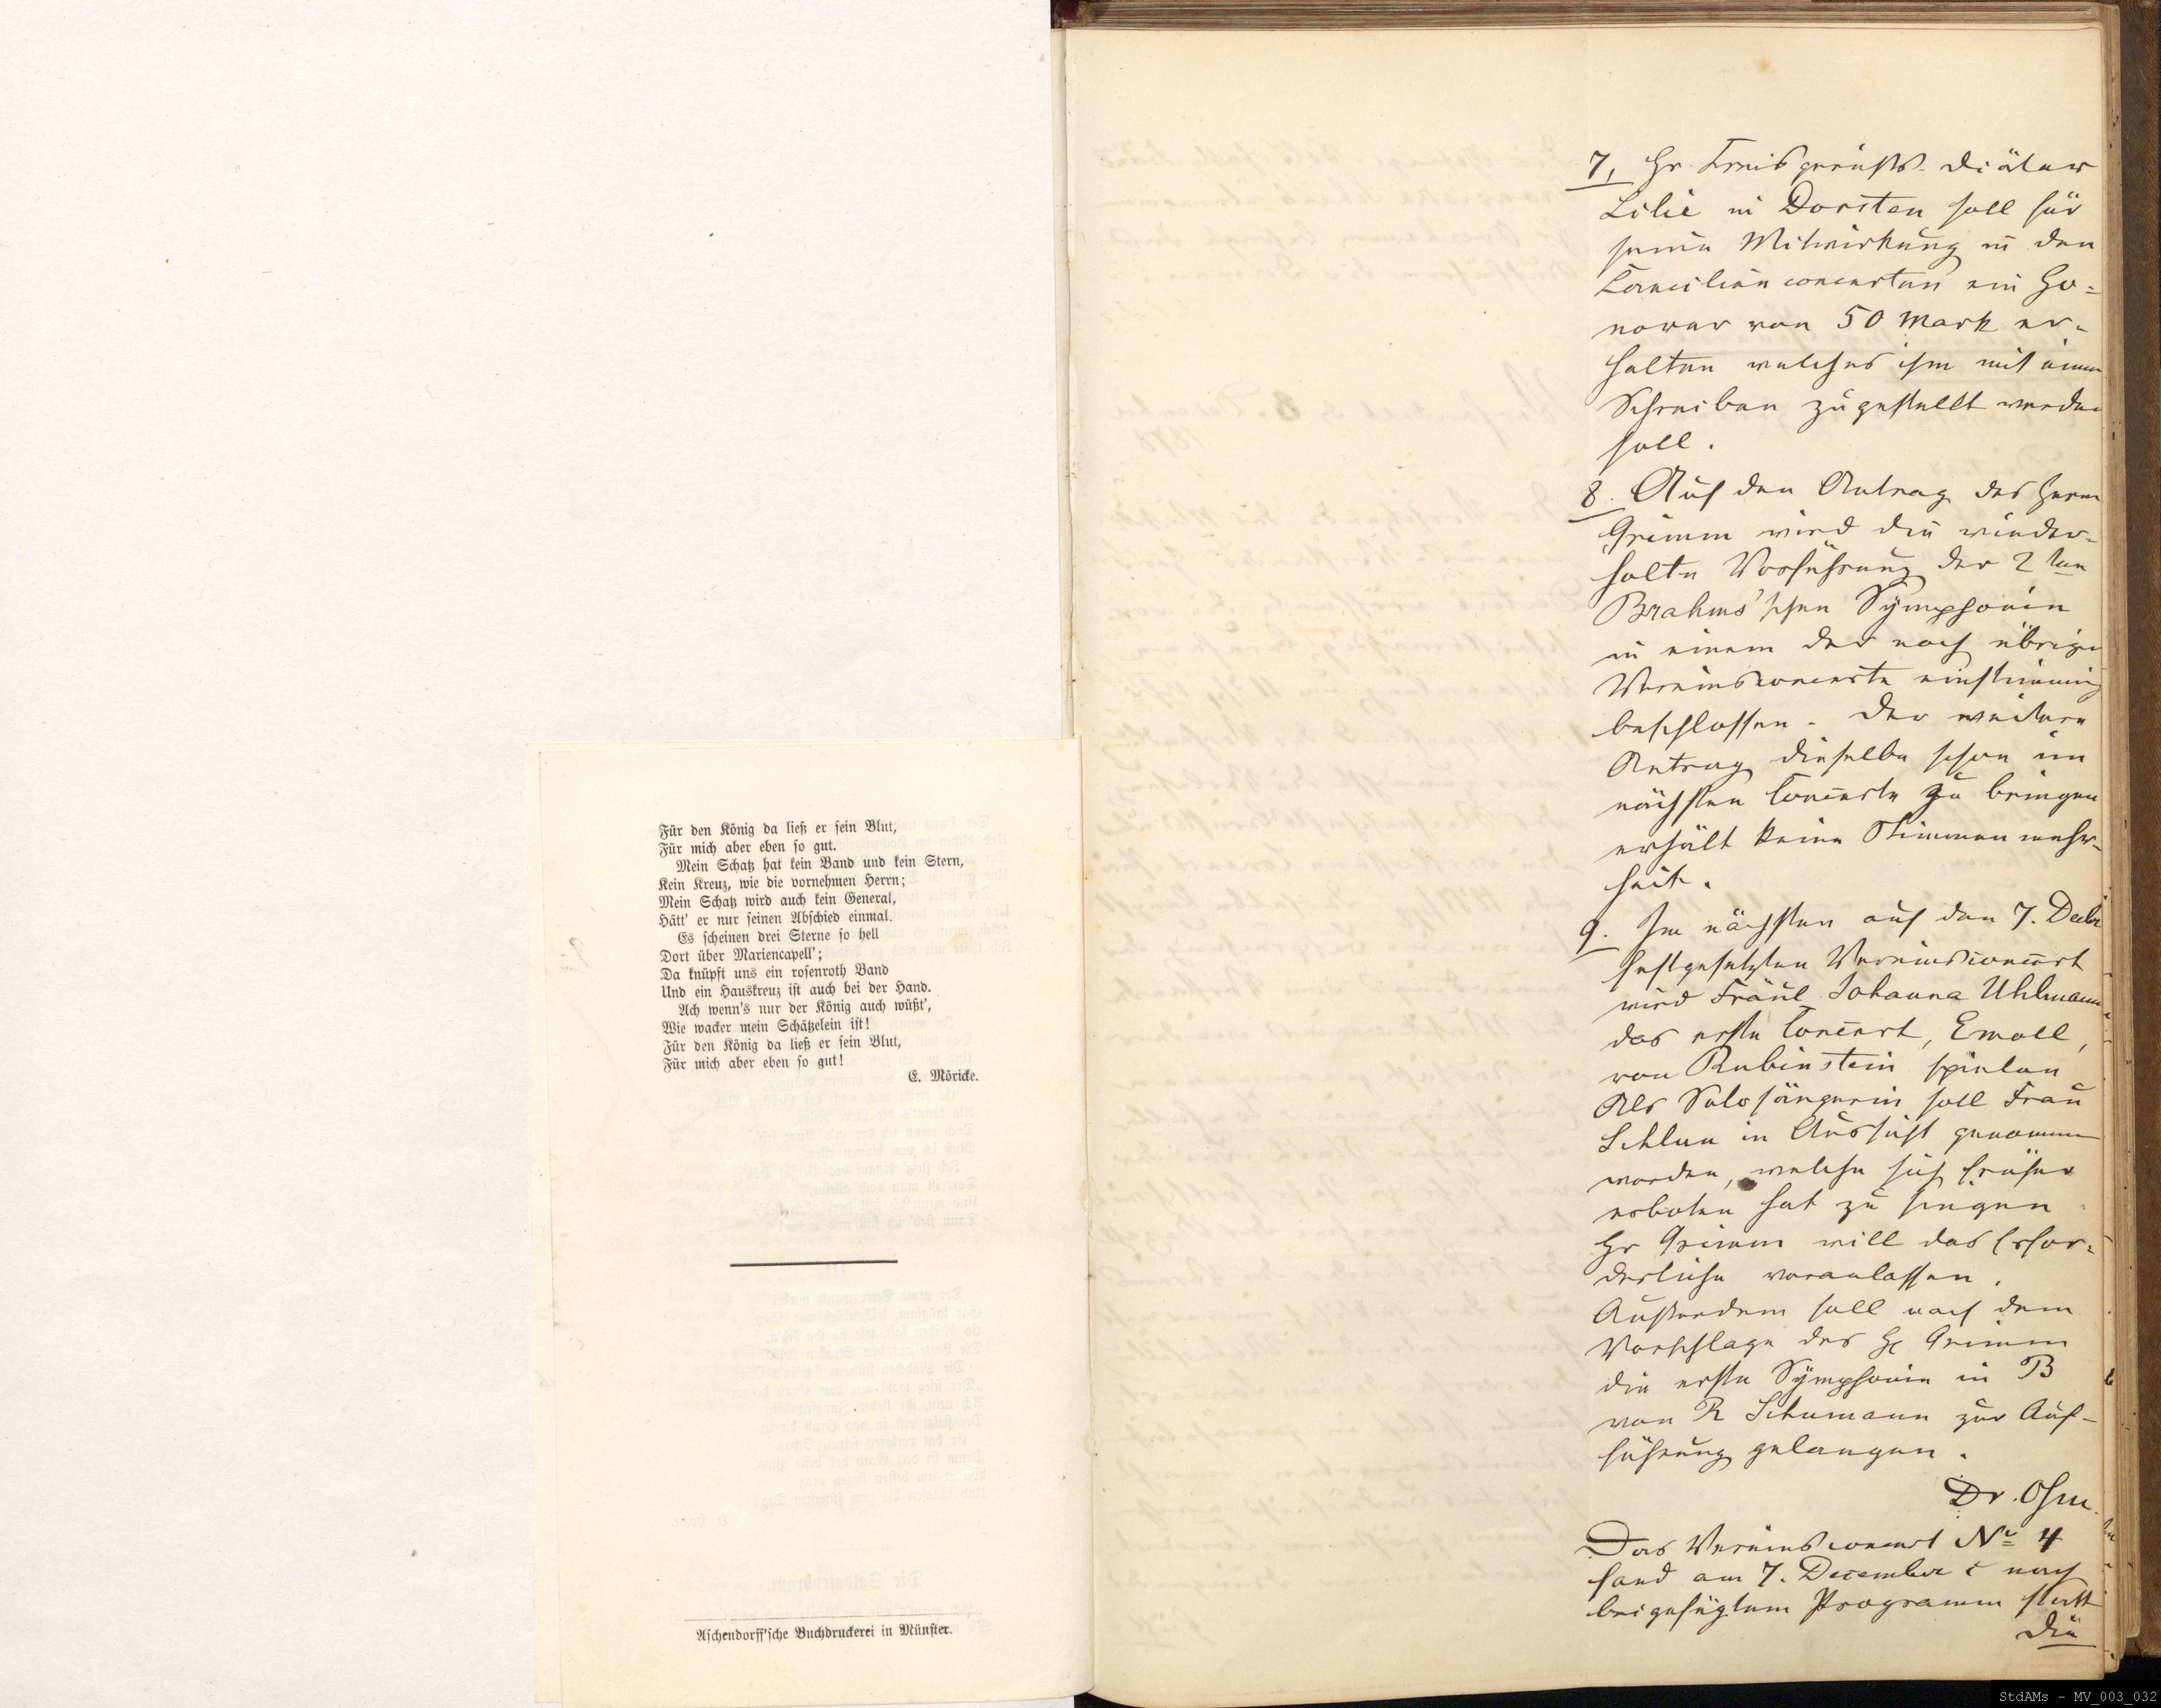 Für den König da ließ er sein Blut,
Für mich aber eben so gut.
Mein Schatz hat kein Band und kein Stern,
Kein Kreuz, wie die vornehmen Herrn;
Mein Schatz wird auch kein General,
Hätt' er nur seinen Abschied einmal.
Es scheinen drei Sterne so hell
Dort über Mariencapell';
Da knüpft uns ein rosenroth Band
Und ein Hauskreuz ist auch bei der Hand.
Ach wenn's nur der König auch wüßt',
Wie wacker mein Schätzelein ist!
Für den König da ließ er sein Blut,
Für mich aber eben so gut!
E. Möricke.
Aschendorff'sche Buchdruckerei in Münster.
7, Hr. Kreisgerichts-Diätar
Lilie in Dorsten soll für
seine Mitwirkung in den
Caecilienconcerten ein Ho=
norar von 50 Mark er-
halten welches ihm mit einem
Schreiben zugestellt werden
soll.
8. Auf den Antrag des Herrn
Grimm wird die wieder-
holte Vorführung der 2ten
Brahms'schen Symphonie
in einem der noch übrigen
Vereinsconcerte einstimmig
beschlossen. Der weitere
Antrag dieselbe schon im
nächsten Concerte zu bringen
erhält keine Stimmenmehr-
heit.
9. Im nächsten auf den 7. Decbr
festgesetzten Vereinsconcert
wird Fräul. Johanna Uhlmann
das erste Concert, Emoll,
von Rubinstein spielen
Als Solosängerin soll Frau
Schlun in Aussicht genommen
werden, welche sich früher
erboten hat zu singen
Hr Grimm will das Erfor=
derliche veranlassen.
Außerdem soll nach dem
Vorschlage des H Grimm
die erste Symphonie in B
von R Schumann zur Auf-
führung gelangen.
Dr. Ohm.
Das Vereinsconcert No 4
fand am 7. December c nach
beigefügtem Programm statt
Die
StdAMs - MV_003_032